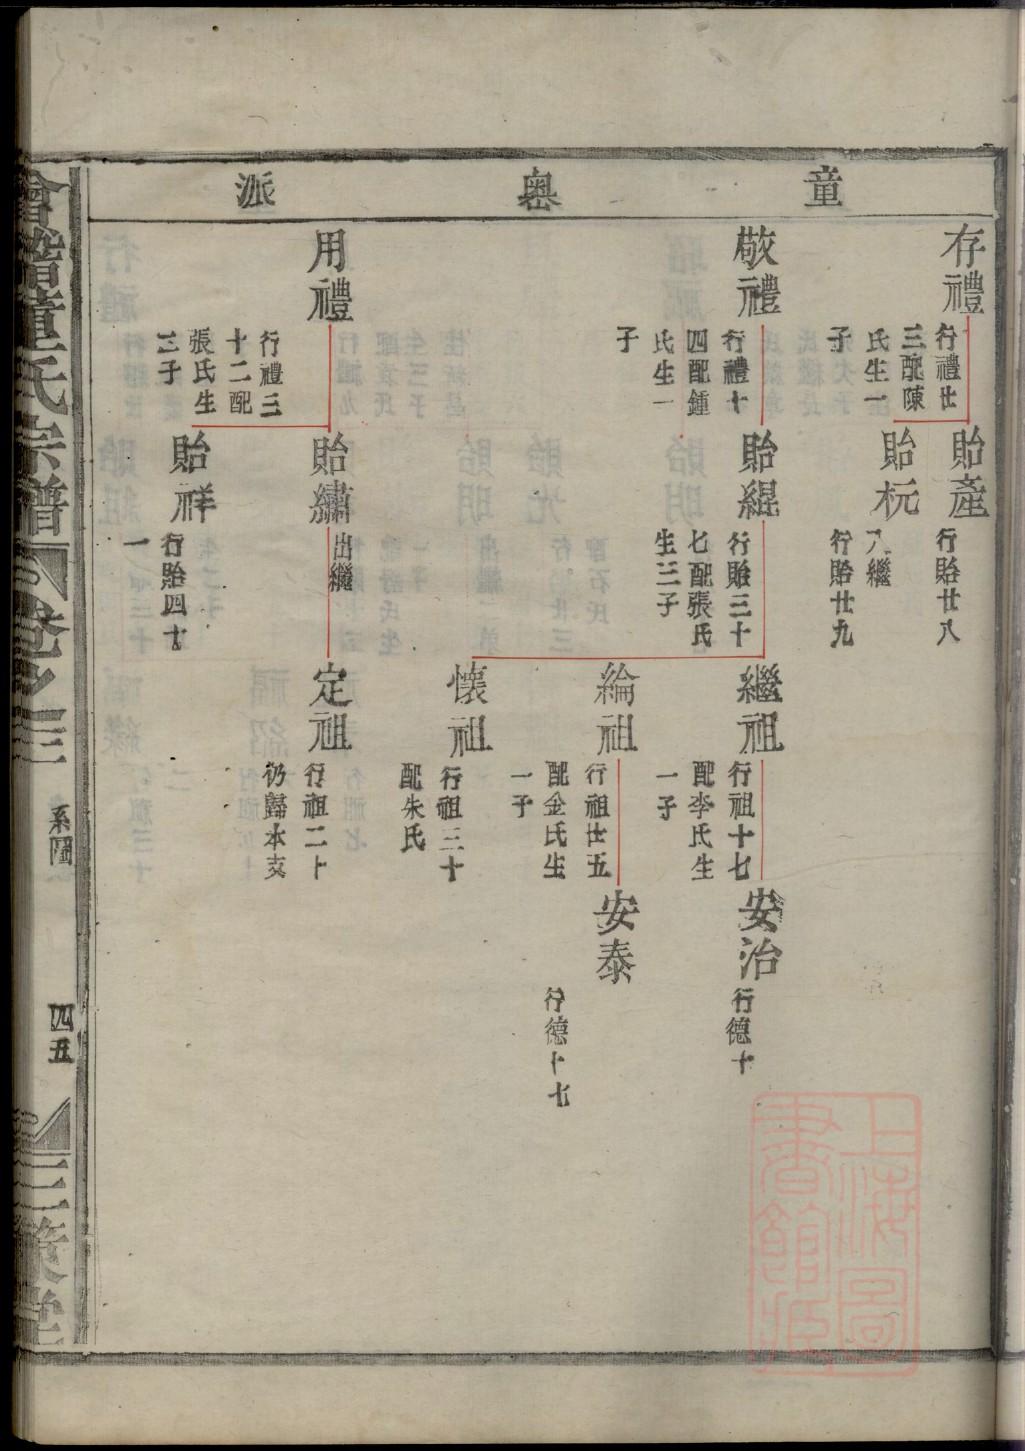 童奧派
存禮
行禮廿
三配陳
氏生一
子
貽產
行貽廿八
貽杬
入繼
行貽廿九
敬禮
行禮十
四配鍾
氏生一
子
貽緄
行貽三十
七配張氏
生三子
繼祖
行祖十七
配李氏生
一子
安治
行德十
綸祖
行祖廿五
配金氏生
一子
安泰
行德十七
懷祖
行祖三十
配朱氏
用禮
行禮三
十二配
張氏生
二子
貽繡
出繼
定祖
行祖二十
仍歸本支
貽祥
行貽四十
一
會稽童氏宗譜
卷之三
系圖
四五
三策堂
上海圖書館藏